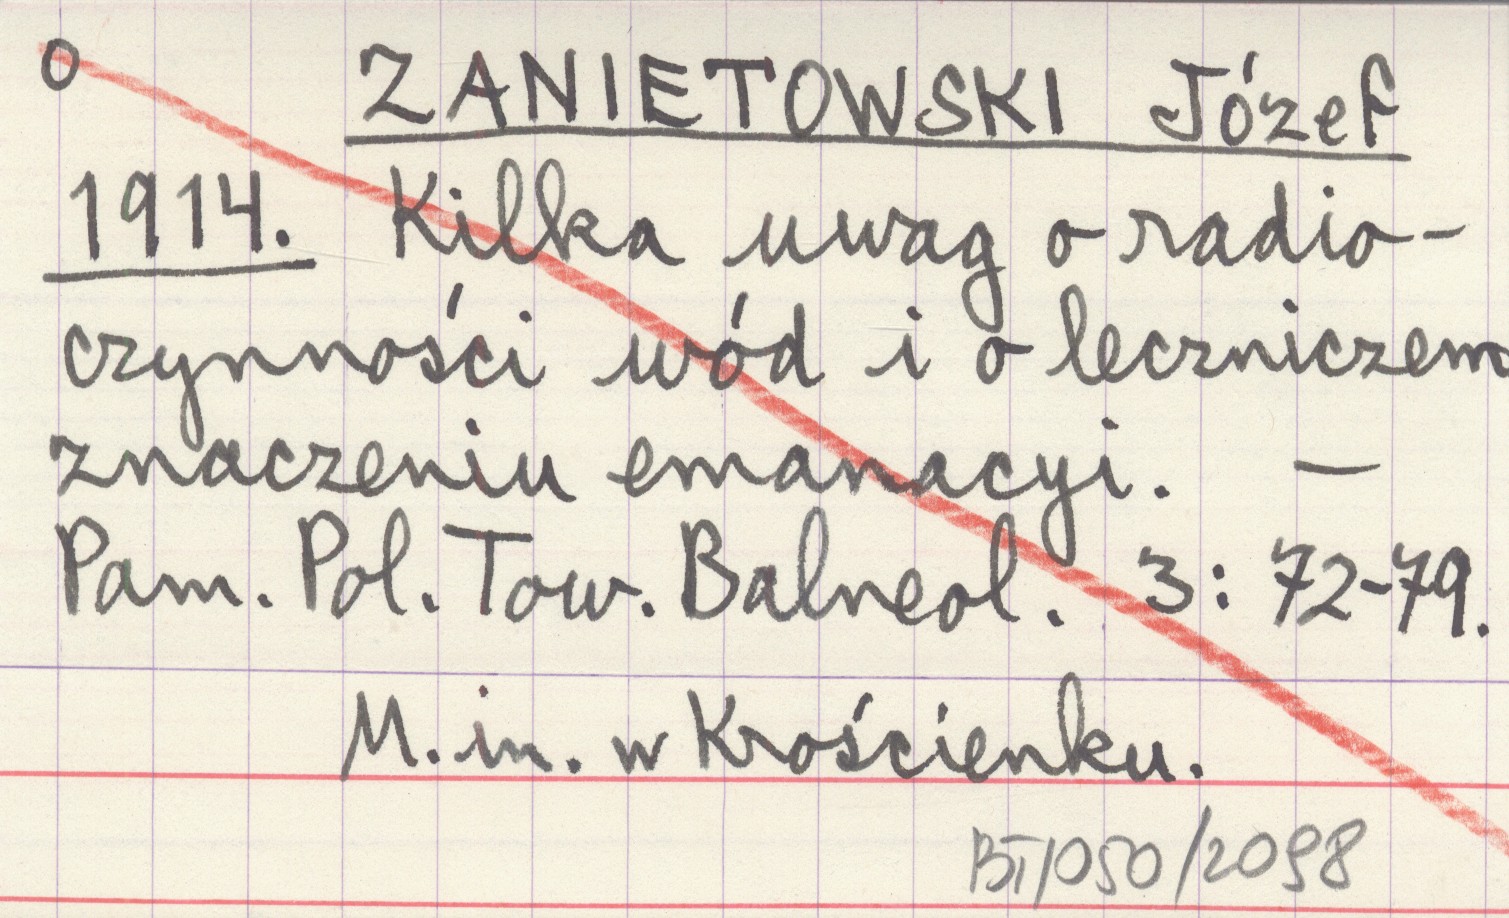 o ZANIETOWSKI Józef
1914. Kilka uwag o radio-
czynności wód i o leczniczem
znaczeniu emanacyi. —
Pam. Pol. Tow. Balneol. 3: 72-79.
M. in. w Krościenku.
BT/050/2098